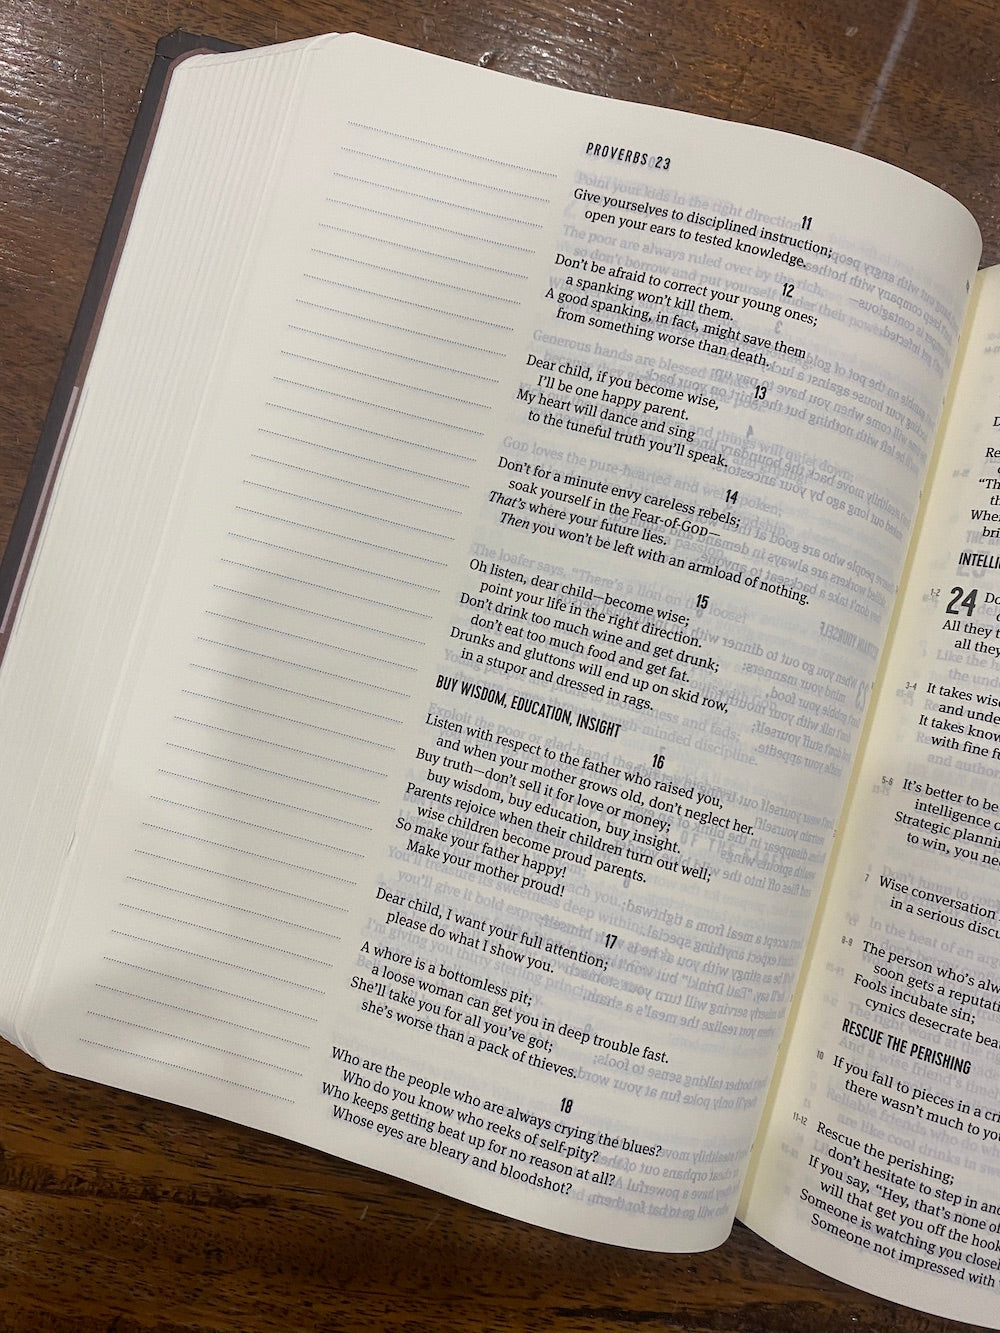 PROVERBS 23
11
Give yourselves to disciplined instruction;
open your ears to tested knowledge.
12
Don't be afraid to correct your young ones;
a spanking won't kill them.
A good spanking, in fact, might save them
from something worse than death.
13
Dear child, if you become wise,
I'll be one happy parent.
My heart will dance and sing
to the tuneful truth you'll speak.
14
Don't for a minute envy careless rebels;
soak yourself in the Fear-of-God—
That's where your future lies.
Then you won't be left with an armload of nothing.
15
Oh listen, dear child—become wise;
point your life in the right direction.
Don't drink too much wine and get drunk;
don't eat too much food and get fat.
Drunks and gluttons will end up on skid row,
in a stupor and dressed in rags.
BUY WISDOM, EDUCATION, INSIGHT
16
Listen with respect to the father who raised you,
and when your mother grows old, don't neglect her.
Buy truth—don't sell it for love or money;
buy wisdom, buy education, buy insight.
Parents rejoice when their children turn out well;
wise children become proud parents.
So make your father happy!
Make your mother proud!
17
Dear child, I want your full attention;
please do what I show you.
A whore is a bottomless pit;
a loose woman can get you in deep trouble fast.
She'll take you for all you've got;
she's worse than a pack of thieves.
18
Who are the people who are always crying the blues?
Who do you know who reeks of self-pity?
Who keeps getting beat up for no reason at all?
Whose eyes are bleary and bloodshot?
1-2
24
All they
all they
3-4
It takes
and
It takes
with fine
5-6
It's better to be
intelligence
Strategic
to win, you
7
Wise conversation
in a serious
8-9
The person who's
soon gets a
Fools incubate sin;
cynics desecrate
RESCUE THE PERISHING
10
If you fall to pieces in a
there wasn't much to
11-12
Rescue the perishing;
don't hesitate to step in
If you say, "Hey, that's none
will that get you off the hook
Someone is watching you
Someone not impressed with